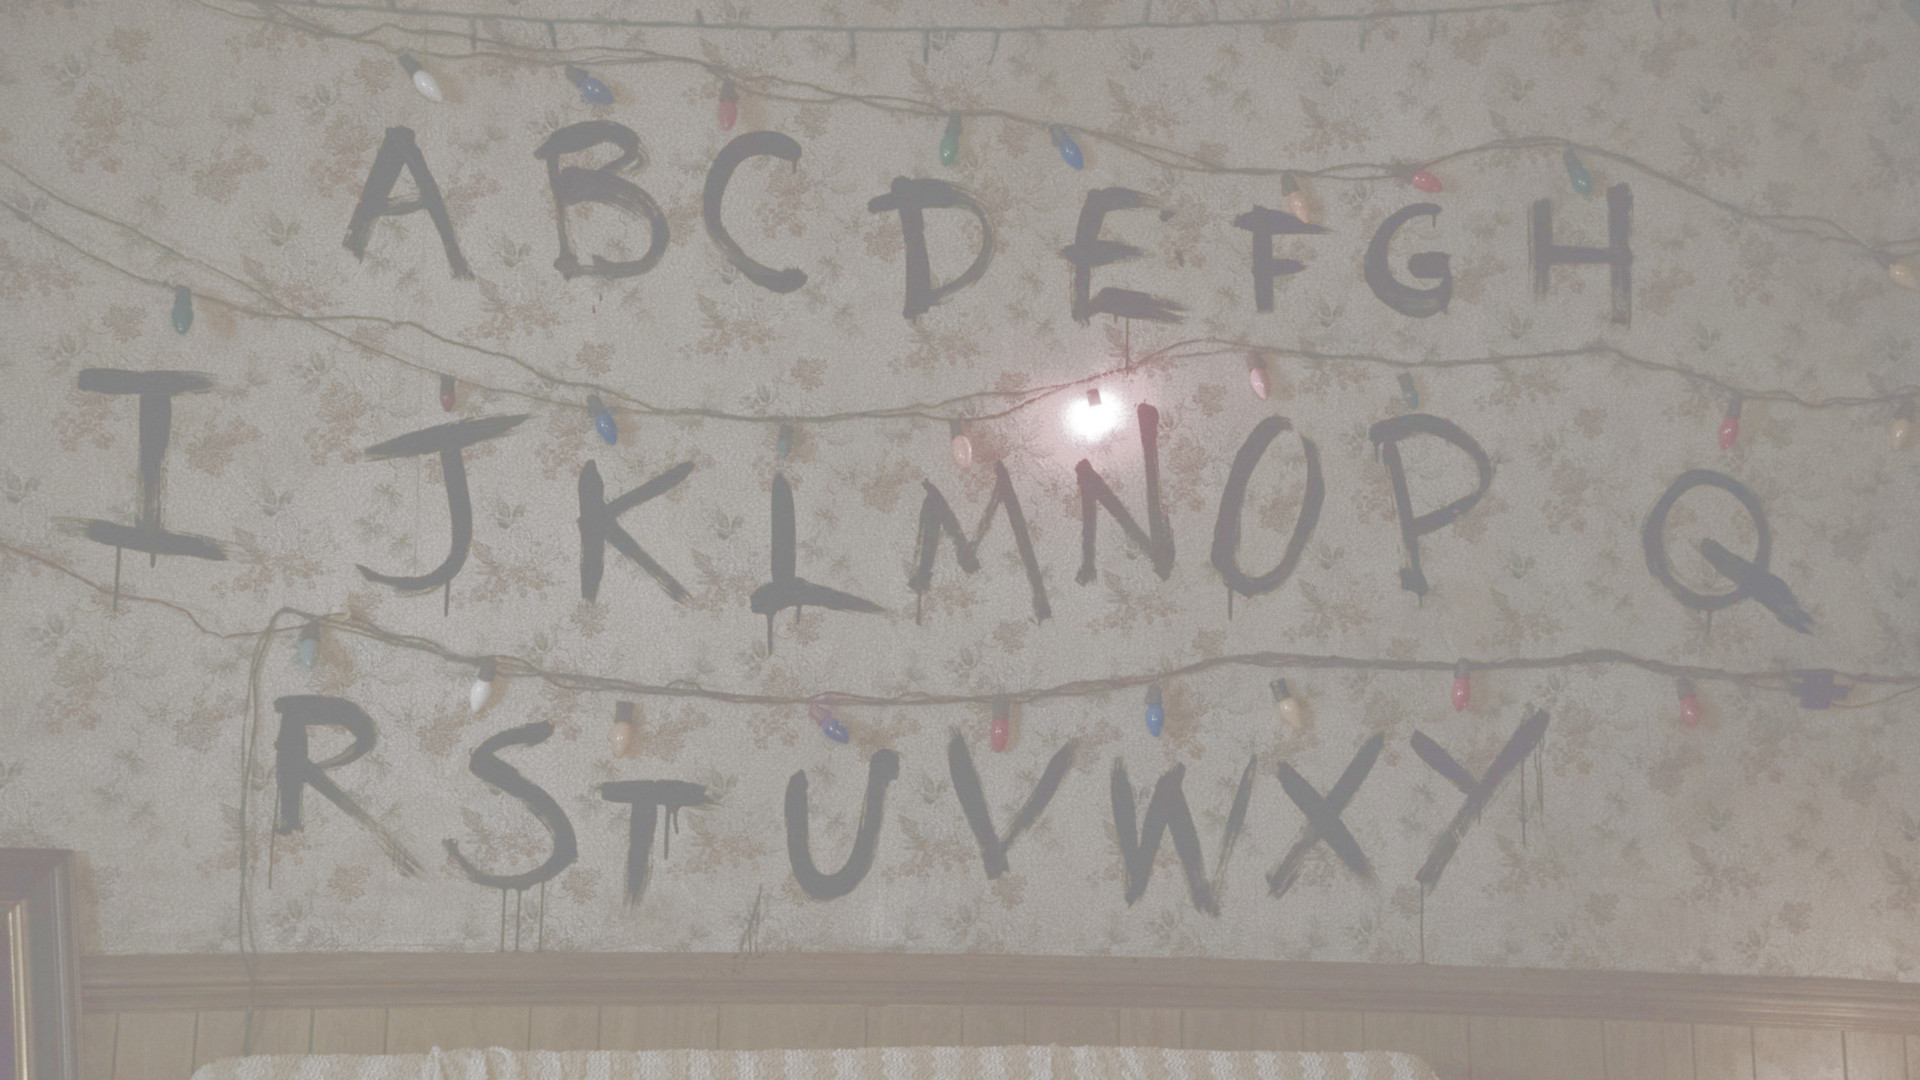 A B C D E F G H
I J K L M N O P Q
R S T U V W X Y